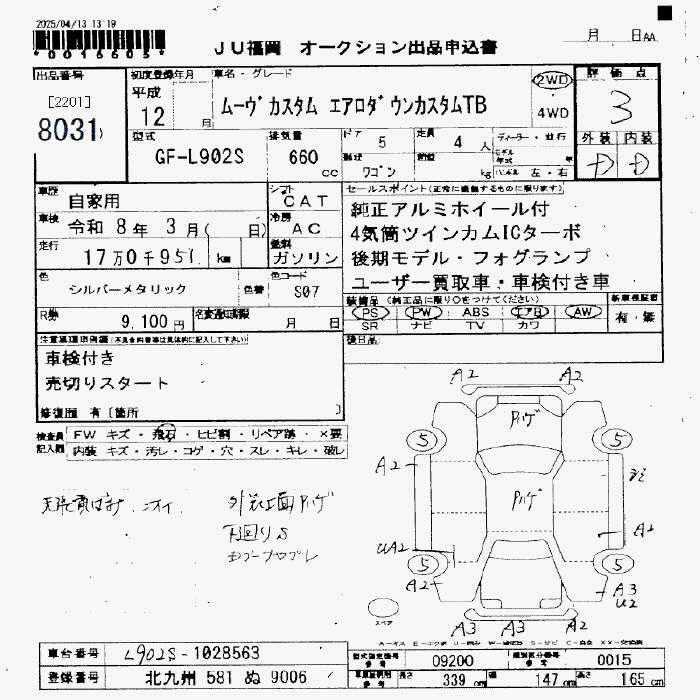 2025/04/13 13:19
*0016605*
月 日AA
JU福岡 オークション出品申込書
出品番号
[2201]
8031
初度登録年月
平成
12 月
車名・グレード
ムーヴカスタム エアロダウンカスタムTB
2WD
4WD
評価点
3
外装 内装
D D
型式
GF-L902S
排気量
660 cc
ドア 5
定員 4 人
ディーラー・並行
形状 ワゴン
kg
ハンドル 左・右
車歴
自家用
シフト
CAT
車検
令和 8年 3月( 日)
冷房
AC
走行
17万0千951 km
燃料
ガソリン
色
シルバーメタリック
色番
色コード
S07
R券
9,100円
名変期限
月 日
セールスポイント(正常に機能するものに限ります)
純正アルミホイール付
4気筒ツインカムICターボ
後期モデル・フォグランプ
ユーザー買取車・車検付き車
装備品(純正品に限り○をつけてください)
PS PW ABS エアB AW
SR ナビ TV カワ
新車保証書
有・無
後日品
注意事項
車検付き
売切りスタート
修復歴 有〔箇所 〕
検査員
記入欄
FW キズ・飛石・ヒビ割・リペア跡・×要
内装 キズ・汚レ・コゲ・穴・スレ・キレ・破レ
天張
外装上面ハゲ
下回りS
A2 A2
ハゲ
5 5
A2
ハゲ
A2
UA2
5 5
A2
A3
U2
スペア
A3 A3 A2
車台番号
L902S-1028563
登録番号
北九州 581 ぬ 9006
型式指定番号
参考
09200
類別区分番号
参考
0015
長さ 339 cm
幅 147 cm
高さ 165 cm